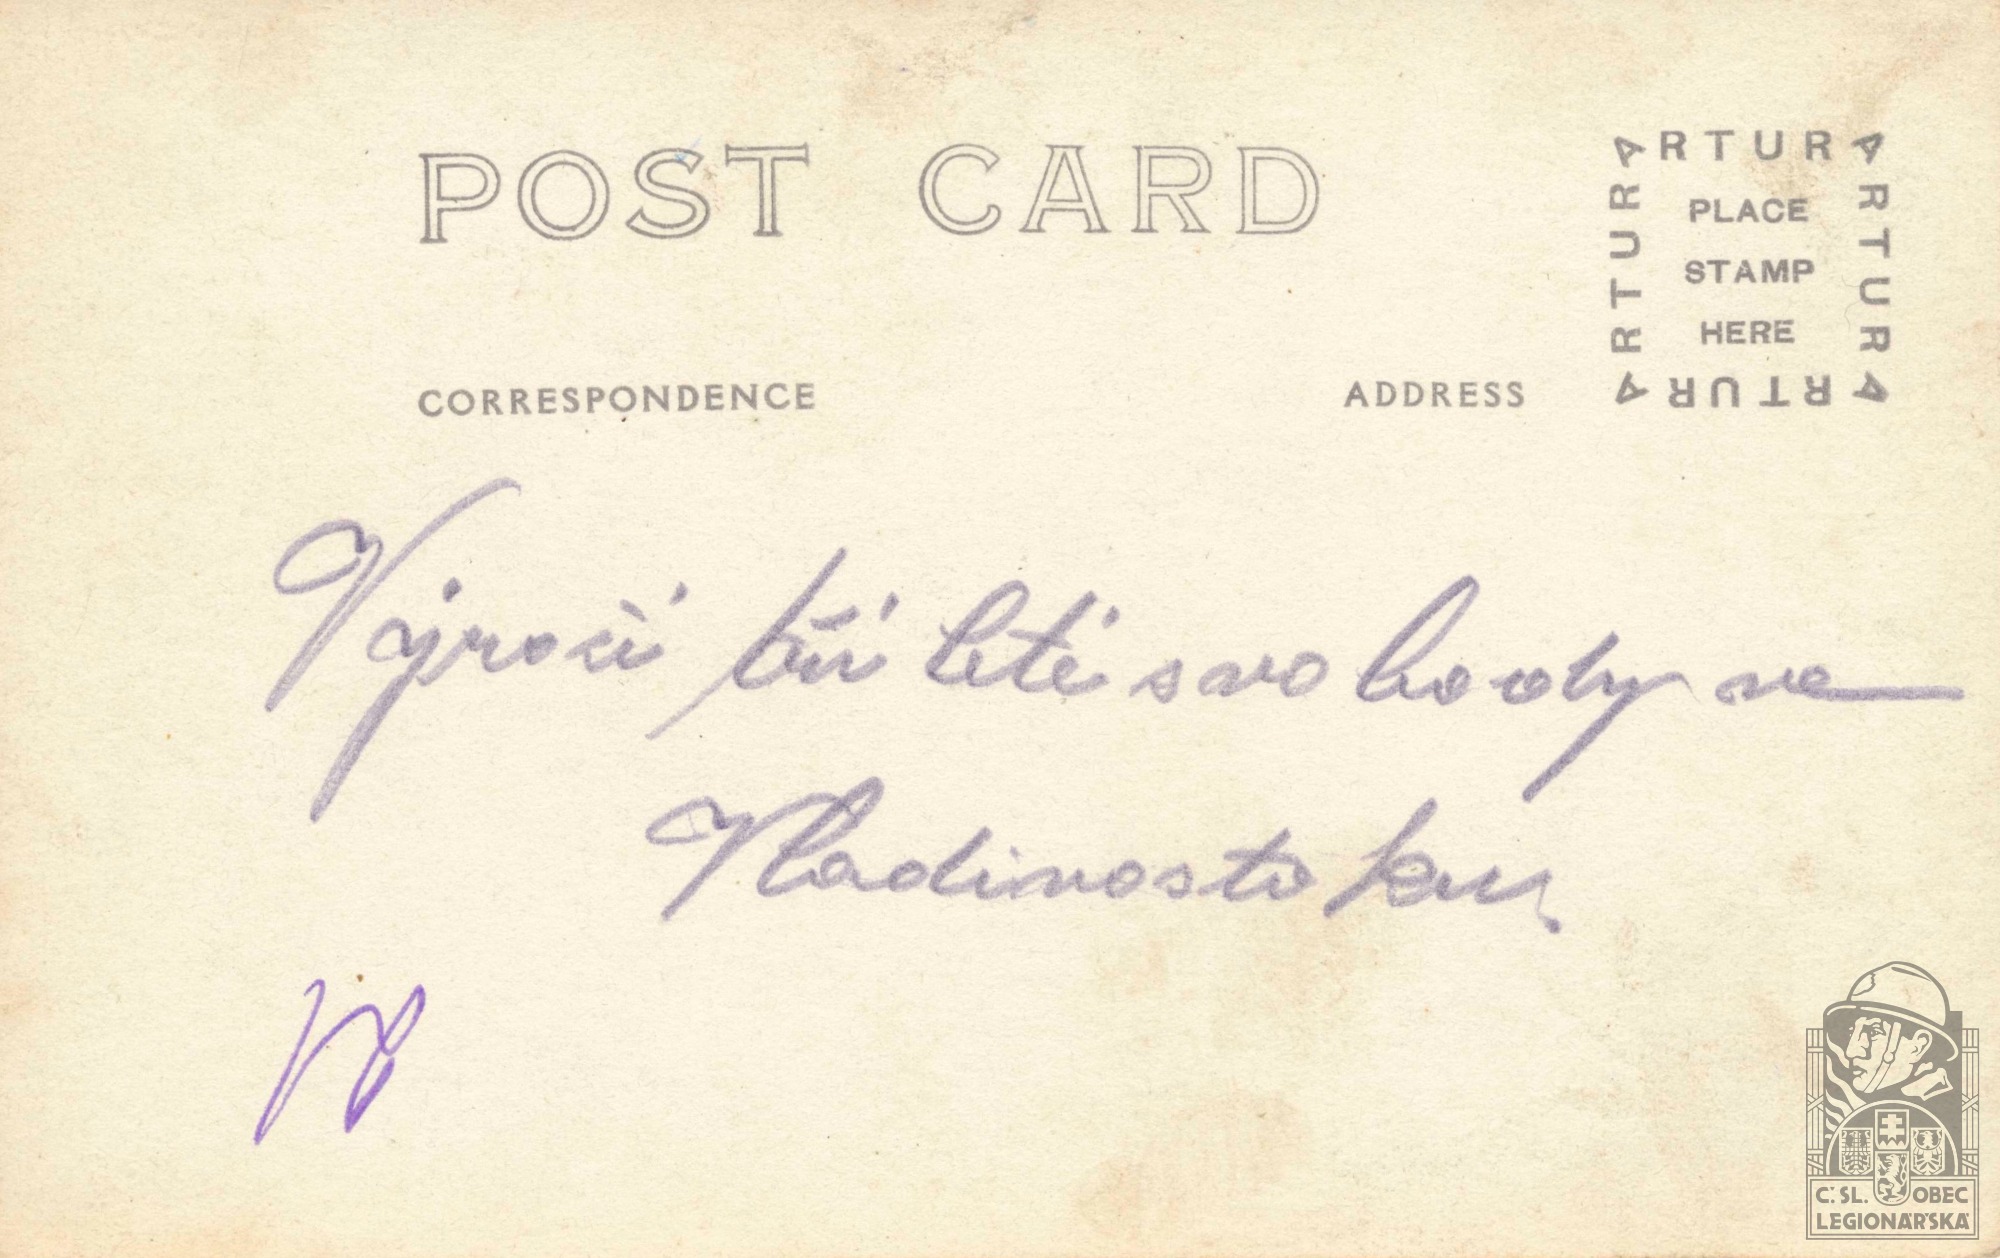 POST CARD
ARTUR
ARTURA
ARTURA
ARTURA
PLACE
STAMP
HERE
CORRESPONDENCE
ADDRESS
Výročí tří leté svobody ve
Vladivostoku
Č. SL. OBEC
LEGIONÁŘSKÁ